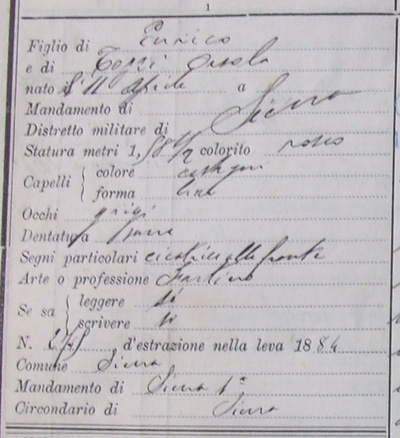 1
Figlio di Enrico
e di Tozzi
nato il 11 Aprile a Siena
Mandamento di
Distretto militare di
Statura metri 1, colorito roseo
Capelli { colore castagni
forma lisci
Occhi grigi
Dentatura sana
Segni particolari cicatrice alla fronte
Arte o professione Fantino
Se sa { leggere si
scrivere si
N. d'estrazione nella leva 1884
Comune Siena
Mandamento di Siena 1°
Circondario di Siena